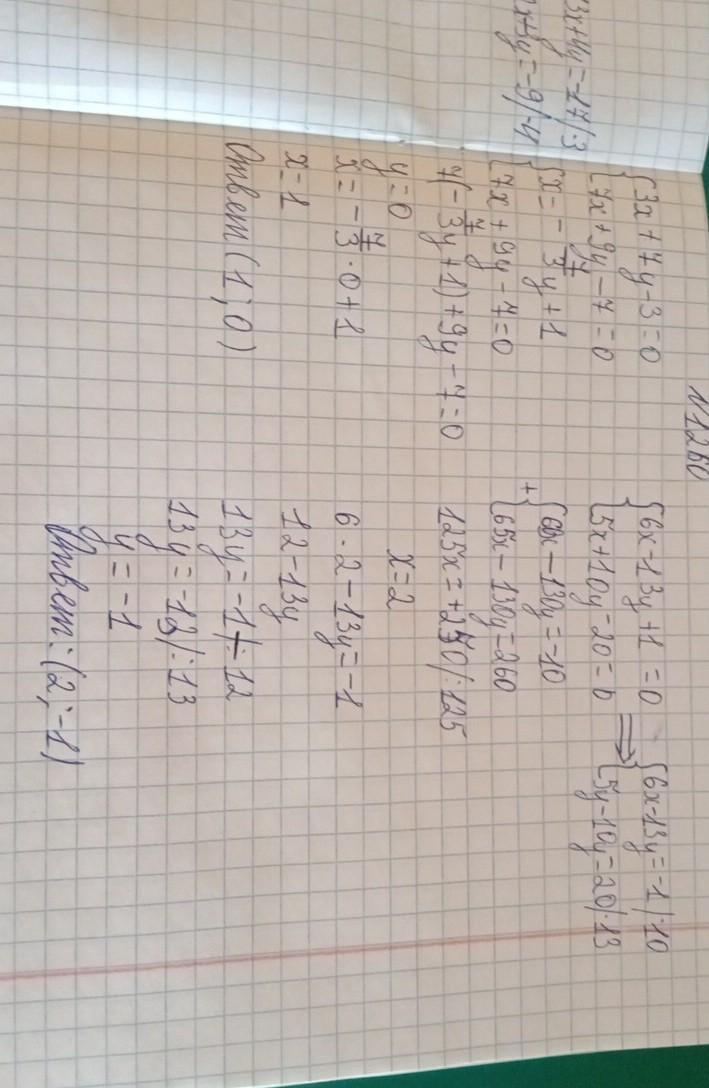 3x+4y=-17|·3
x+3y=-9|·4
N1260
{3x+4y-3=0
{7x+9y-7=0
{x=-4/3y+1
{7x+9y-7=0
7(-4/3y+1)+9y-7=0
y=0
x=-4/3·0+1
x=1
Ответ(1;0)
{6x-13y+1=0
{5x+10y-20=0
=>
{6x-13y=-1|·10
{5y-10y=20|·13
+
{60x-130y=-10
{65x-130y=260
125x=+250|:125
x=2
6·2-13y=-1
12-13y
13y=-1|-12
13y=-13|:13
y=-1
Ответ:(2;-1)